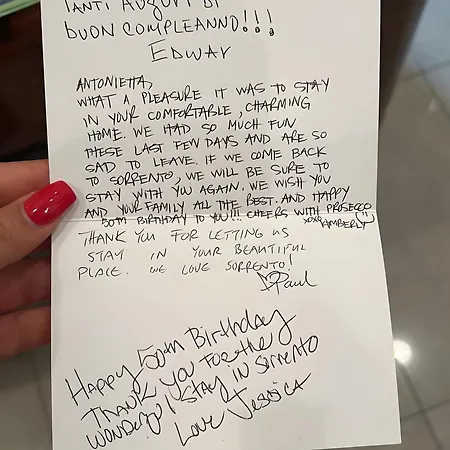 TANTI AUGURI DI
BUON COMPLEANNO!!!
EDWAR
ANTONIETTA,
WHAT A PLEASURE IT WAS TO STAY
IN YOUR COMFORTABLE, CHARMING
HOME. WE HAD SO MUCH FUN
THESE LAST FEW DAYS AND ARE SO
SAD TO LEAVE. IF WE COME BACK
TO SORRENTO, WE WILL BE SURE TO
STAY WITH YOU AGAIN. WE WISH YOU
AND YOUR FAMILY ALL THE BEST. AND HAPPY
50TH BIRTHDAY TO YOU!!! CHEERS WITH PROSECCO
XOXO KIMBERLY
THANK YOU FOR LETTING US
STAY IN YOUR BEAUTIFUL
PLACE. WE LOVE SORRENTO!
Paul
Happy 50th Birthday
Thank you for the
wonderful stay in Sorrento
Love Jessica